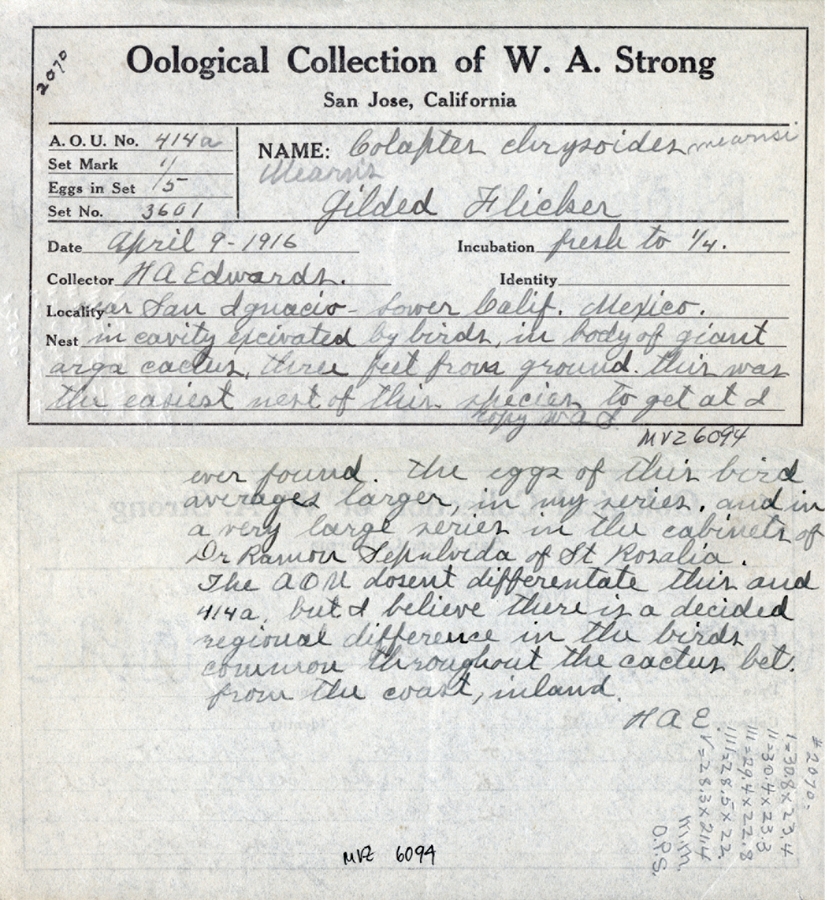 2070
Oological Collection of W. A. Strong
San Jose, California
A. O. U. No. 414a
Set Mark 1/
Eggs in Set /5
Set No. 3601
NAME: Colaptes chrysoides mearnsi
Mearns
Gilded Flicker
Date April 9-1916 Incubation fresh to 1/4.
Collector H A Edwards. Identity
Locality near San Ignacio - Lower Calif. Mexico.
Nest in cavity excivated by birds, in body of giant
cactus, three feet from ground. this was
the easiest nest of this species to get at I
copy W A S
MVZ 6094
ever found. the eggs of this bird
averages larger, in my series, and in
a very large series in the cabinets of
Dr Ramon Sepulvida of St Rosalia.
The AOU dosent differentate this and
414a, but I believe there is a decided
regional difference in the birds
common throughout the cactus bet.
from the coast, inland.
H A E.
#2070.
1=30.8x23.4
11=30.4x23.3
111=29.4x22.8
1111=28.5x22.
V=28.3x21.4
m.m.
O.P.S.
MVZ 6094